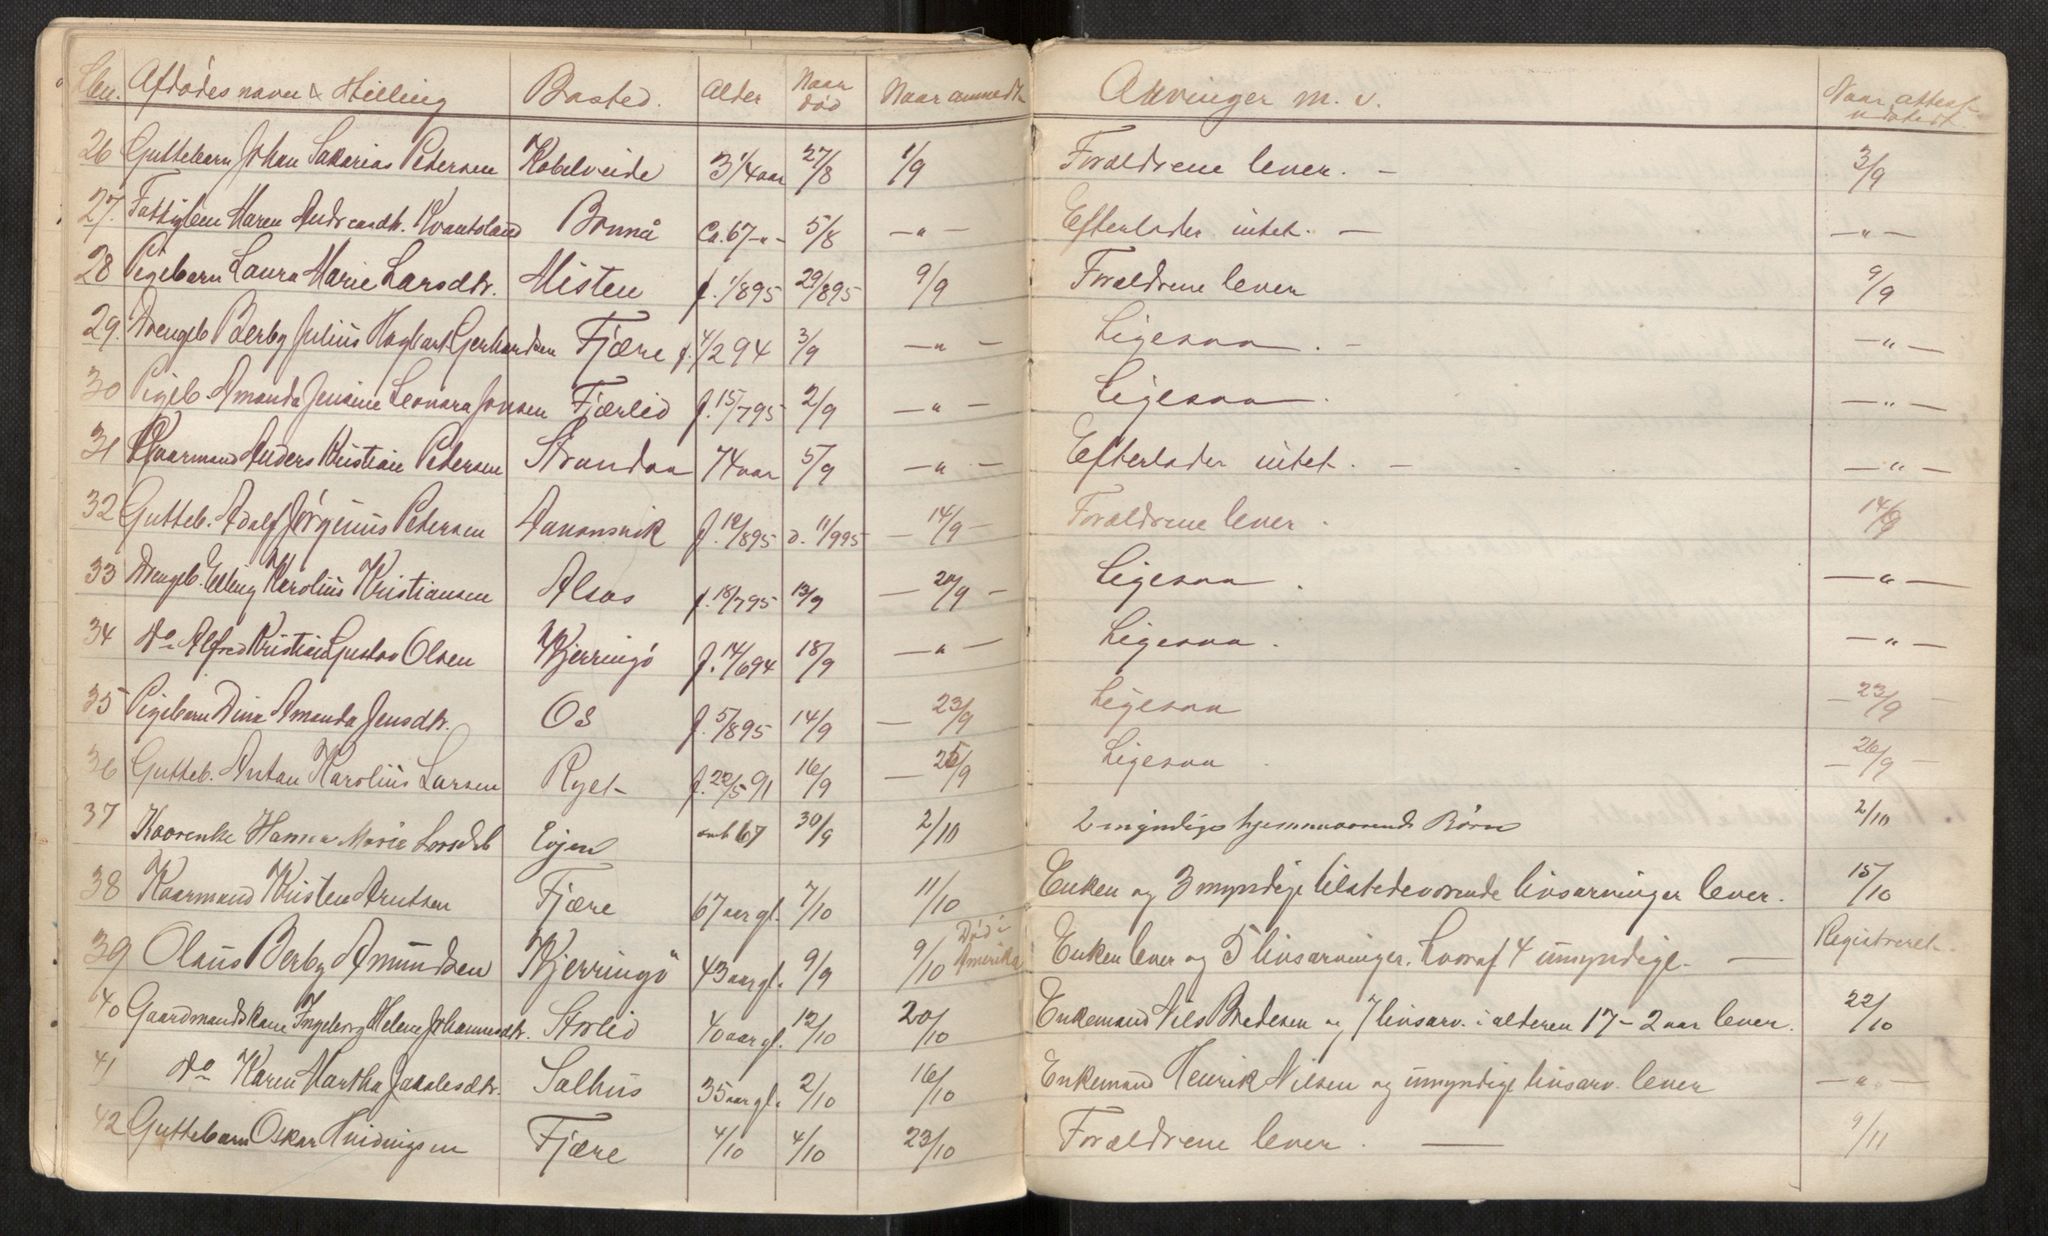 Lbn. Afdødes navn & Stilling Bosted. Alder Naar død Naar anmeldt Arvinger m. v. Naar attest udstedt.
26 Guttebarn Johan Sakarias Petersen Kobelveide 3 1/4 aar 27/8 1/9 Forældrene lever. - 3/9
27. Fattiglem Maren Andreasdtr. Kvantoland Bonnå Ca. 67 -"- 5/8 -"- Efterlader intet. - -"-
28 Pigebarn Laura Marie Larsdtr. Misten f. 1/895 29/895 9/9 Forældrene lever 9/9
29. Drengeb. Berby Julius Hagbart Gerhardsen Fjære f. 4/294 3/9 -"- Ligesaa. - -"-
30 Pigeb. Amanda Jensine Leonara Jonsen Fjærlid f. 15/795 2/9 -"- Ligesaa. -"-
31 Kaarmand Anders Kristian Petersen Strandaa 74 aar 5/9 -"- Efterlader intet. - -"-
32 Gutteb. Adolf Jørginus Petersen Aanonsvik f. 12/895 d. 11/995 - 14/9 - Forældrene lever. 14/9
33 Drengeb. Elling Karolius Kristiansen Alsos f. 18/795 13/9 - 20/9 - Ligesaa. -"-
34 Do Alfred Kristian Gustav Olsen Kjerringö f. 14/694 18/9 -"- Ligesaa. -"-
35 Pigebarn Dina Amanda Jensdtr. Os f. 5/895 14/9 - 23/9 Ligesaa - 23/9 -
36 Gutteb. Antan Karolius Larsen Ryet f. 22/591 16/9 - 25/9 Ligesaa. - 26/9 -
37 Kaarenke Hanna Marie Larsdtr Evjen omtr 67 30/9 2/10 2 myndige hjemmeværende Børn 2/10
38 Kaarmand Kristen Arntsen Fjære 67 aar gl. 7/10 11/10 Enken og 3 myndige tilstedeværende livsarvinger lever. 15/10
39 Olaus Berby Amundsen Kjerringö 43 aar gl. 9/9 9/10 Død i Amerika Enken lever og 5 livsarvinger, hvoraf 4 umyndige. - Registreret.
40 Gaardmandskone Ingeborg Helene Johannesdtr. Storlid 40 aar gl. 12/10 20/10 Enkemand Nils Bredesen og 7 livsarv. i alderen 17-2 aar lever. 22/10
41 Do Karen Martha Jakobsdtr. Salhus 35 aar gl. 2/10 16/10 Enkemand Henrik Nilsen og umyndige livsarv. lever -"-
42 Guttebarn Oskar Hvidingsen Fjære 4/10 4/10 23/10 Forældrene lever. - 9/11